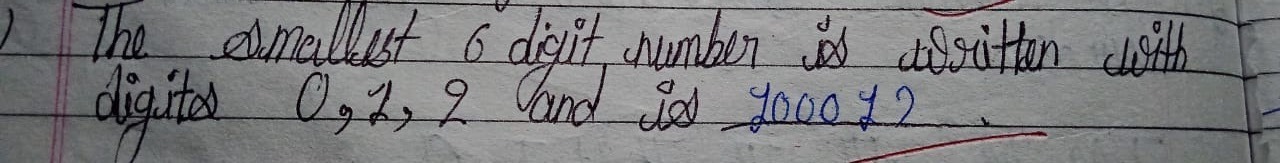 ) The smallest 6 digit number is written with
digits 0, 1, 2 and is 100012.